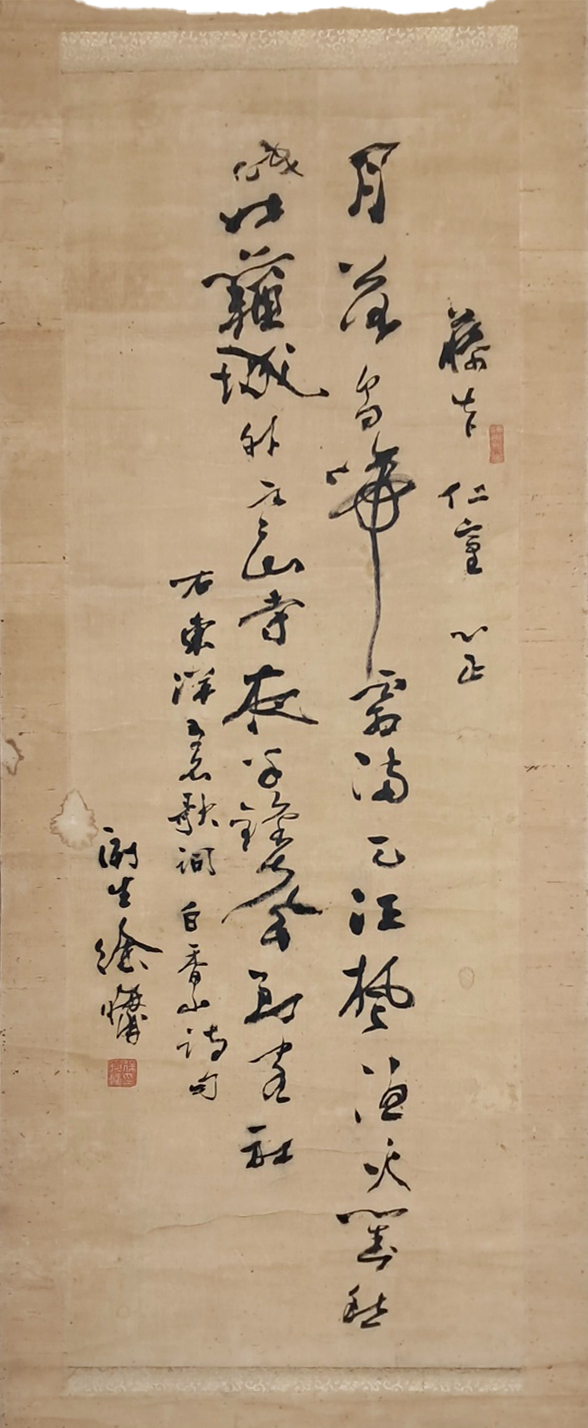 藤吉 仁臺
月落烏啼霜滿天江楓漁火對愁
眠姑蘇城外寒山寺夜半鐘聲到客船
右東洋意歌詞白香山詩句
生徐